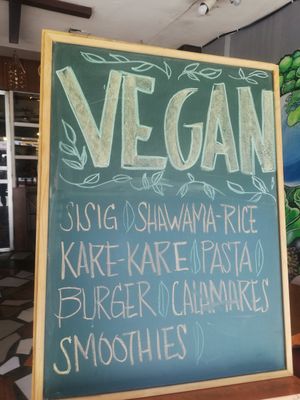 VEGAN
SISIG SHAWAMA-RICE
KARE-KARE PASTA
BURGER CALAMARES
SMOOTHIES